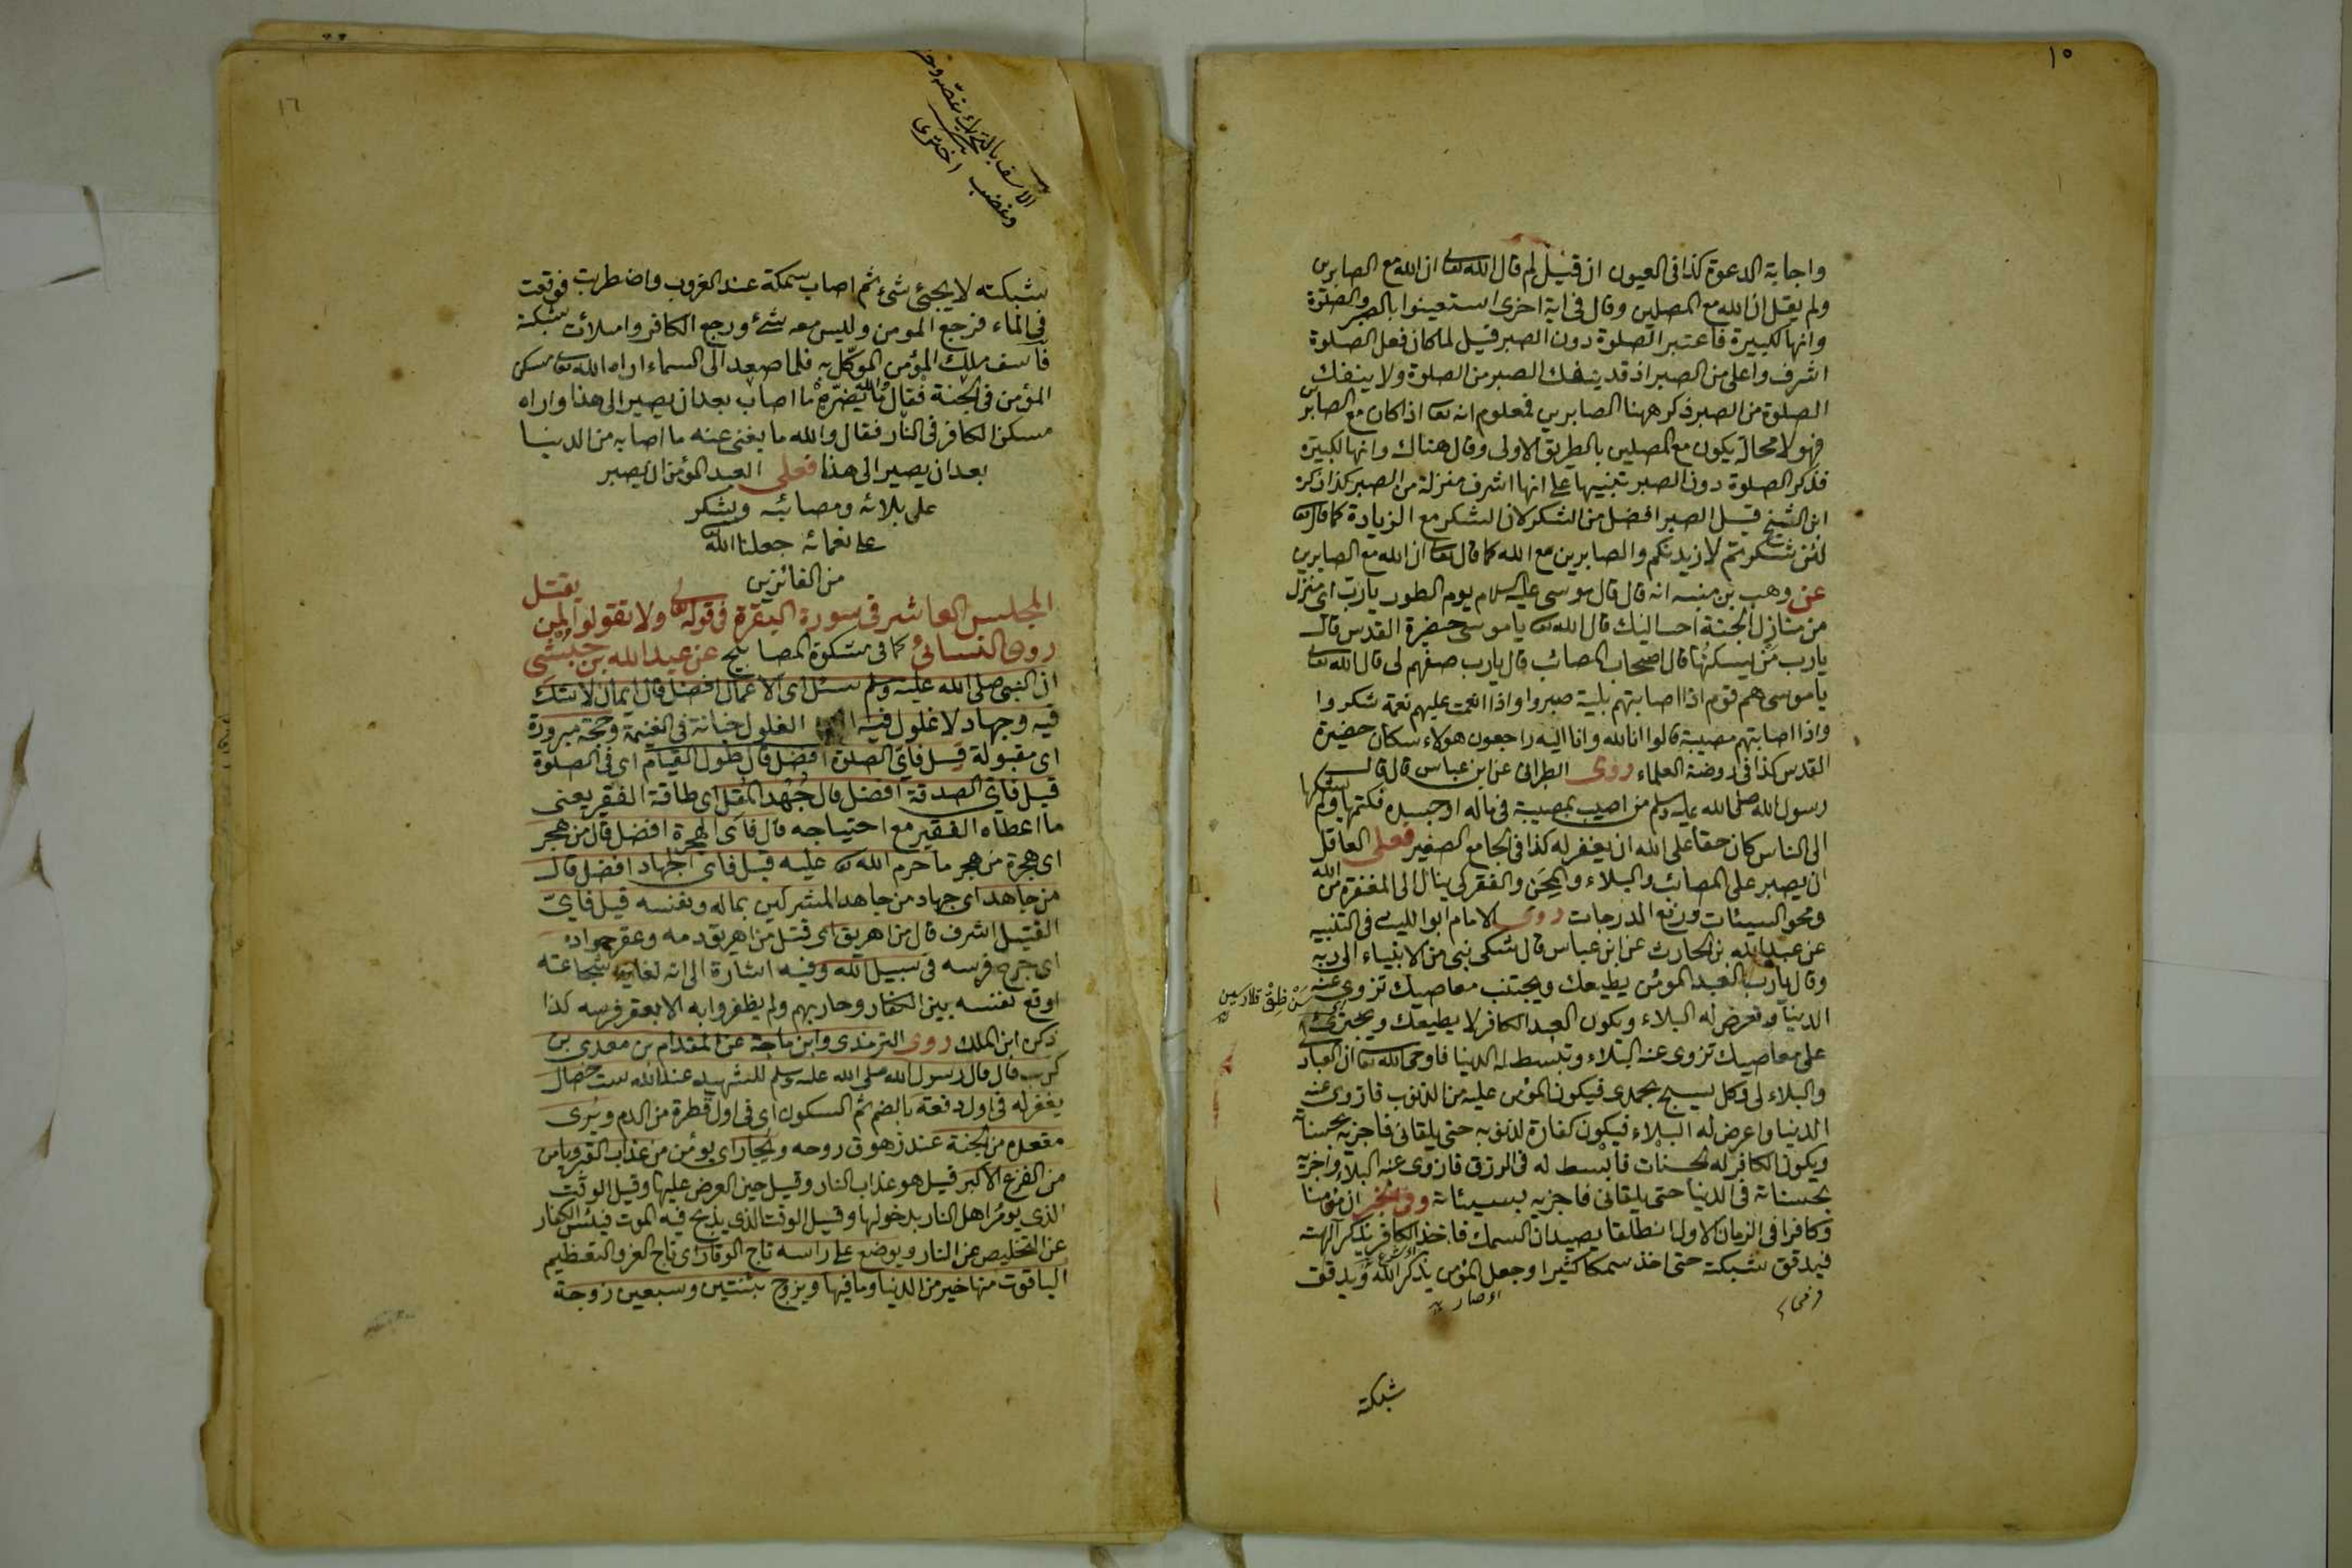 ١٥
واجابة الدعوة كذا فى العيون ان قيل لم قال الله تعالى ان الله مع الصابرين
ولم يقل ان الله مع المصلين وقال فى اية اخرى استعينوا بالصبر والصلوة
وانها لكبيرة فاعتبر الصلوة دون الصبر قيل لما كان فعل الصلوة
اشرف واعلى من الصبر اذ قد ينفك الصبر من الصلوة ولا ينفك
الصلوة من الصبر ذكر ههنا الصابرين فمعلوم انه تعالى اذا كان مع الصابرين
فهو لا محالة يكون مع المصلين بالطريق الاولى وقال هناك وانها لكبيرة
فذكر الصلوة دون الصبر تنبيها على انها اشرف منزلة من الصبر كذا ذكره
ابن الشيخ قيل الصبر افضل من الشكر لان الشكر مع الزيادة كما قال تعالى
لئن شكرتم لازيدنكم والصابرين مع الله كما قال تعالى ان الله مع الصابرين
عن وهب بن منبه انه قال قال موسى عليه السلام يوم الطور يا رب اى منزل
من منازل الجنة احب اليك قال الله تعالى يا موسى حضيرة القدس قال
يا رب من يسكنها قال اصحاب المصائب قال يا رب صفهم لى قال الله تعالى
يا موسى هم قوم اذا اصابتهم بلية صبروا واذا انعمت عليهم نعمة شكروا
واذا اصابتهم مصيبة قالوا انا لله وانا اليه راجعون هولاء سكان حضيرة
القدس كذا فى روضة العلماء روى الطبرانى عن ابن عباس قال قال
رسول الله صلى الله عليه وسلم من اصيب بمصيبة فى ماله او جسده فكتمها ولم يشكها
الى الناس كان حقا على الله ان يغفر له كذا فى الجامع الصغير فعلى العاقل
ان يصبر على المصائب والبلاء والمحن والفقر كى ينال الى المغفرة من الله
ومحو السيئات ورفع الدرجات روى الامام ابو الليث فى التنبيه
عن عبد الله بن الحارث عن ابن عباس قال شكى نبى من الانبياء الى ربه
وقال يا رب العبد المؤمن يطيعك ويجتنب معاصيك تزوى عنه
الدنيا وتعرض له البلاء ويكون العبد الكافر لا يطيعك ويجترئ
على معاصيك تزوى عنه البلاء وتبسط له الدنيا فاوحى الله تعالى ان العباد
والبلاء لى وكل يسبح بحمدى فيكون المؤمن عليه من الذنوب فازوى عنه
الدنيا واعرض له البلاء فيكون كفارة لذنوبه حتى يلقانى فاجزيه بحسناته
ويكون الكافر له الحسنات فابسط له فى الرزق فازوى عنه البلاء واجزيه
بحسناته فى الدنيا حتى يلقانى فاجزيه بسيئاته وفى الخبر ان مؤمنا
وكافرا فى الزمان الاول انطلقا يصيدان السمك فاخذ الكافر يذكر آلهته
فيدقق شبكته حتى اخذ سمكا كثيرا وجعل المؤمن يذكر الله ويدقق
شبكته
١٦
وغضب اخترى
شبكته لا يجئ شئ ثم اصاب سمكة عند الغروب واضطربت فوقعت
فى الماء فرجع المومن وليس معه شئ ورجع الكافر وامتلأت شبكته
فأسف ملك المؤمن الموكل به فلما صعد الى السماء اراه الله تعالى مسكن
المؤمن فى الجنة فقال والله ما يضره ما اصاب بعد ان يصير الى هذا واراه
مسكن الكافر فى النار فقال والله ما يغنى عنه ما اصابه من الدنيا
بعد ان يصير الى هذا فعلى العبد المؤمن ان يصبر
على بلائه ومصائبه ويشكر
على نعمائه جعلنا الله تعالى
من الفائزين
المجلس العاشر فى سورة البقرة فى قوله تعالى ولا تقولوا لمن يقتل
روى النسائى كما فى مشكوة المصابيح عن عبد الله بن حبشى
ان النبى صلى الله عليه وسلم سئل اى الاعمال افضل قال ايمان لا شك
فيه وجهاد لا غلول فيه الغلول خيانة فى الغنيمة وحجة مبرورة
اى مقبولة قيل فاى الصلوة افضل قال طول القيام اى فى الصلوة
قيل فاى الصدقة افضل قال جهد المقل اى طاقة الفقير يعنى
ما اعطاه الفقير مع احتياجه قال فاى الهجرة افضل قال من هجر
اى هجرة من هجر ما حرم الله تعالى عليه قيل فاى الجهاد افضل قال
من جاهد اى جهاد من جاهد المشركين بماله ونفسه قيل فاى
القتيل اشرف قال من اهريق اى قتل من اهريق دمه وعقر جواده
اى جرح فرسه فى سبيل الله وفيه اشارة الى انه لغاية شجاعته
اوقع نفسه بين الكفار وحاربهم ولم يظفروا به الا بعقر فرسه كذا
ذكره ابن الملك روى الترمذى وابن ماجة عن المقدام بن معدى بن
كرب قال قال رسول الله صلى الله عليه وسلم للشهيد عند الله ست خصال
يغفر له فى اول دفعة بالضم ثم السكون اى فى اول قطرة من الدم ويرى
مقعده من الجنة عند زهوق روحه ويجار اى يؤمن من عذاب القبر ويأمن
من الفزع الاكبر قيل هو عذاب النار وقيل حين العرض عليها وقيل الوقت
الذى يؤمر اهل النار بدخولها وقيل الوقت الذى يذبح فيه الموت فيئس الكفار
عن التخليص عن النار ويوضع على راسه تاج الوقار اى تاج العز والتعظيم
الياقوت منها خير من الدنيا وما فيها ويزوج بثنتين وسبعين زوجة